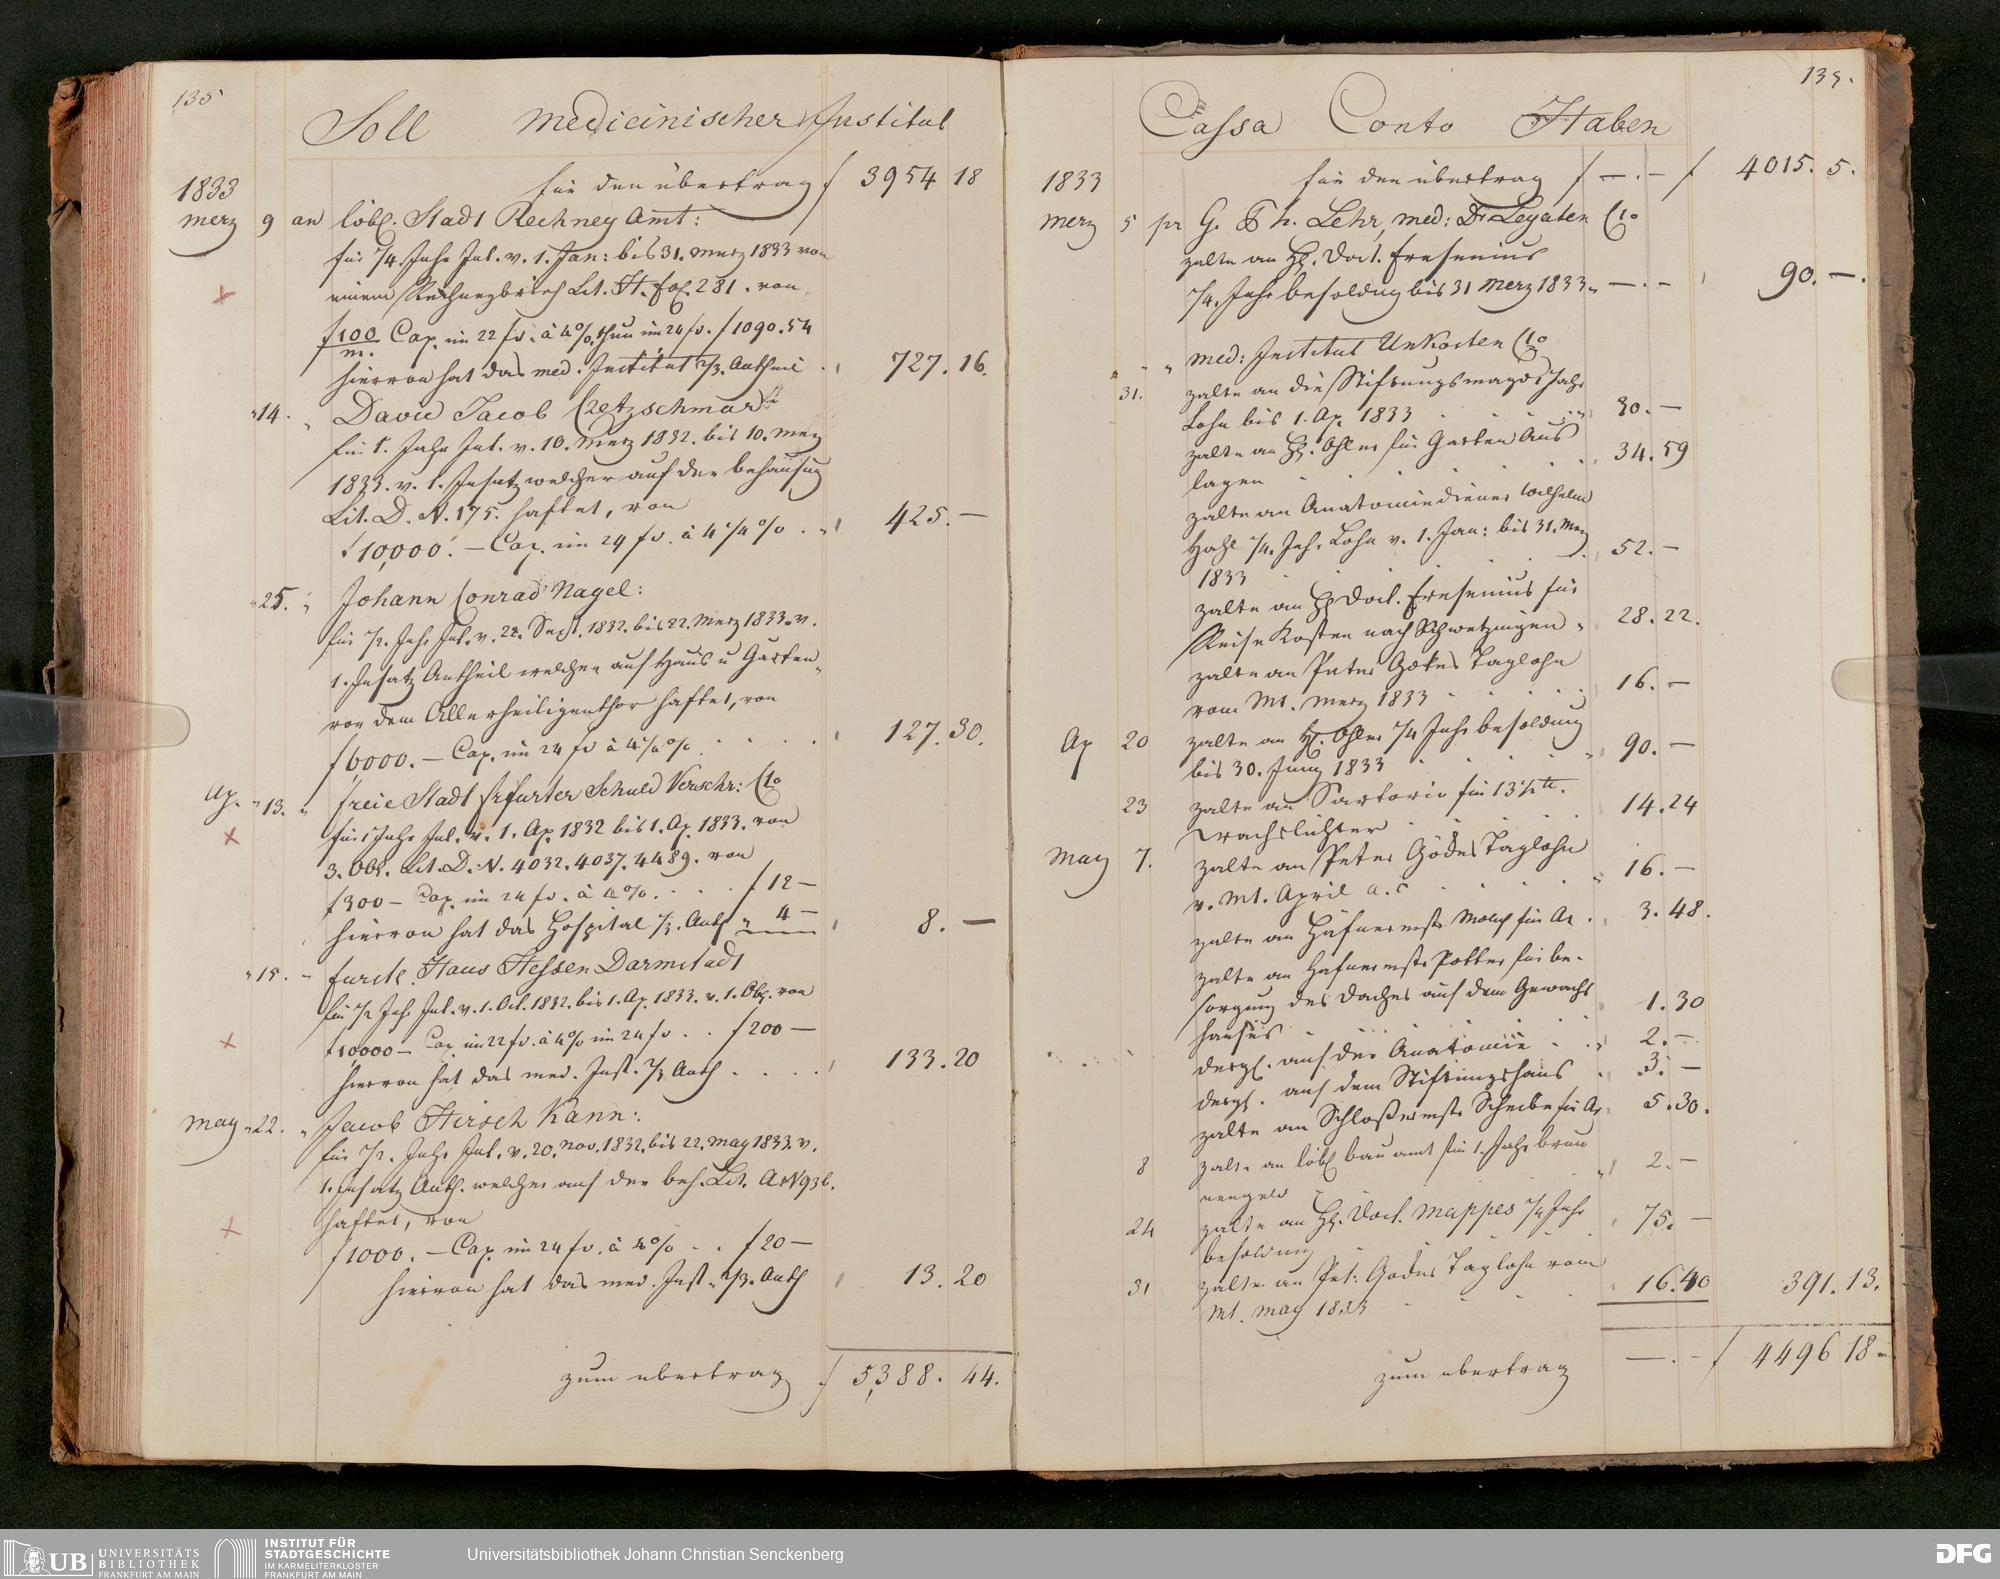 135
Soll medicinischer Institut
1833
für den übertrag f 3954 18
merz 9 an löbl. Stadt Rechney Amt:
für 1/4 Jahr Int. v. 1. Jan: bis 31. merz 1833 von
einem Rechneybrief Lit. H. fol. 281. von
f 100/m. Cap. im 22 fs. à 4% thun im 24 fs. f 1090.54
hiervon hat das med. Institut 2/3 Antheil 727.16.
"14. " David Jacob Cretzschmar
für 1. Jahr Int. v. 10. merz 1832. bis 10. merz
1833. v. 1. Insatz welcher auf der behausung
Lit. D. N. 175. haftet, von
f 10,000. – Cap. im 24 fs. à 4 1/4 % . " 425. –
"25. " Johann Conrad Nagel:
für 1/2 Jahr Int. v. 22. Sept. 1832. bis 22. merz 1833. v.
1. Insatz Antheil welcher auf Haus u Garten
vor dem Allerheiligenthor haftet, von
f 6000. – Cap. im 24 fs à 4 1/4 % . . . . 127.30.
Ap. "13. " freie Stadt frfurter Schuld Verschr: Cto
für 1 Jahr Int. v. 1. Ap. 1832 bis 1. Ap. 1833. von
3. Obl. Lit. D. N. 4032. 4037. 4489. von
f 300 – Cap. im 24 fs. à 4%. . . . f 12 –
hiervon hat das Hospital 1/3. Anth " 4 – 8. –
"15. " furstl. Haus Hessen Darmstadt
für 1/2 Jahr Int. v. 1. Oct. 1832. bis 1. Ap. 1833. v. 1. Obl. von
f 10,000 – Cap. im 22 fs. à 4% im 24 fs . . f 200 –
hiervon hat das med. Inst. 2/3 Anth . . . . 133.20
may "22. " Jacob Hirsch Kann:
für 1/2. Jahr Int. v. 20. nov. 1832. bis 22. may 1833. v.
1. Insatz Anth. welcher auf der beh. Lit. A N 936.
haftet, von
f 1000. – Cap. im 24 fs. à 4% . . f 20 –
hiervon hat das med. Inst. 2/3. Anth 13.20
zum übertrag f 5,388. 44.
135.
Cassa Conto Haben
1833
für den übertrag f – . – f 4015. 5.
merz 5 pr G. Th. Lehr, med: Dr Legaten Cto
zalte an H. Doct. Fresenius
1/4. Jahr besoldug bis 31 merz 1833 " – . – 90. – .
" " med: Institut Unkosten Cto
31. zalte an die Stiftungsmagd Jahr
Lohn bis 1. Ap. 1833 30. –
zalte an H. Ohler für Garten Aus
lagen 34.59
zalte an Anatomiediener Wilhelm
Hahl 1/4. Jahr Lohn v. 1. Jan: bis 31. Merz
1833 52. –
zalte an H Doct. Fresenius für
Reise Kosten nach Schwetzingen " 28.22.
zalte an Peter Godes Taglohn
vom Mt. merz 1833 16. –
Ap 20 zalte an H. Ohler 1/4 Jahr besoldung
bis 30. Juny 1833 90. –
23 zalte an Sartorio für 13 1/2 lb.
wachslichter 14.24
may 7. zalte an Peter Godes Taglohn
v. Mt. April a. c. 16. –
zalte an Häfnermstr für Ar . 3.48.
zalte an Hafnermstr Potter für be-
sorgung des Daches auf dem Gewächs
hauses 1.30
dergl. auf der Anatomie . . 2. –
dergl. auf dem Stiftungshaus . 3. –
zalte an Schloßermstr Scheibe für Ar 5.30.
8 zalte an löbl bau amt für 1. Jahr brun
nengeld 2. –
24 zalte an H. Doct. Mappes 1/4 Jahr
besoldung 75. –
31 zalte an Pet: Godes Taglohn vom
Mt. may 1833 16.40 391.13.
zum übertrag – . – f 4496 18 –
UB UNIVERSITÄTS
BIBLIOTHEK
FRANKFURT AM MAIN
INSTITUT FÜR
STADTGESCHICHTE
IM KARMELITERKLOSTER
FRANKFURT AM MAIN
Universitätsbibliothek Johann Christian Senckenberg
DFG